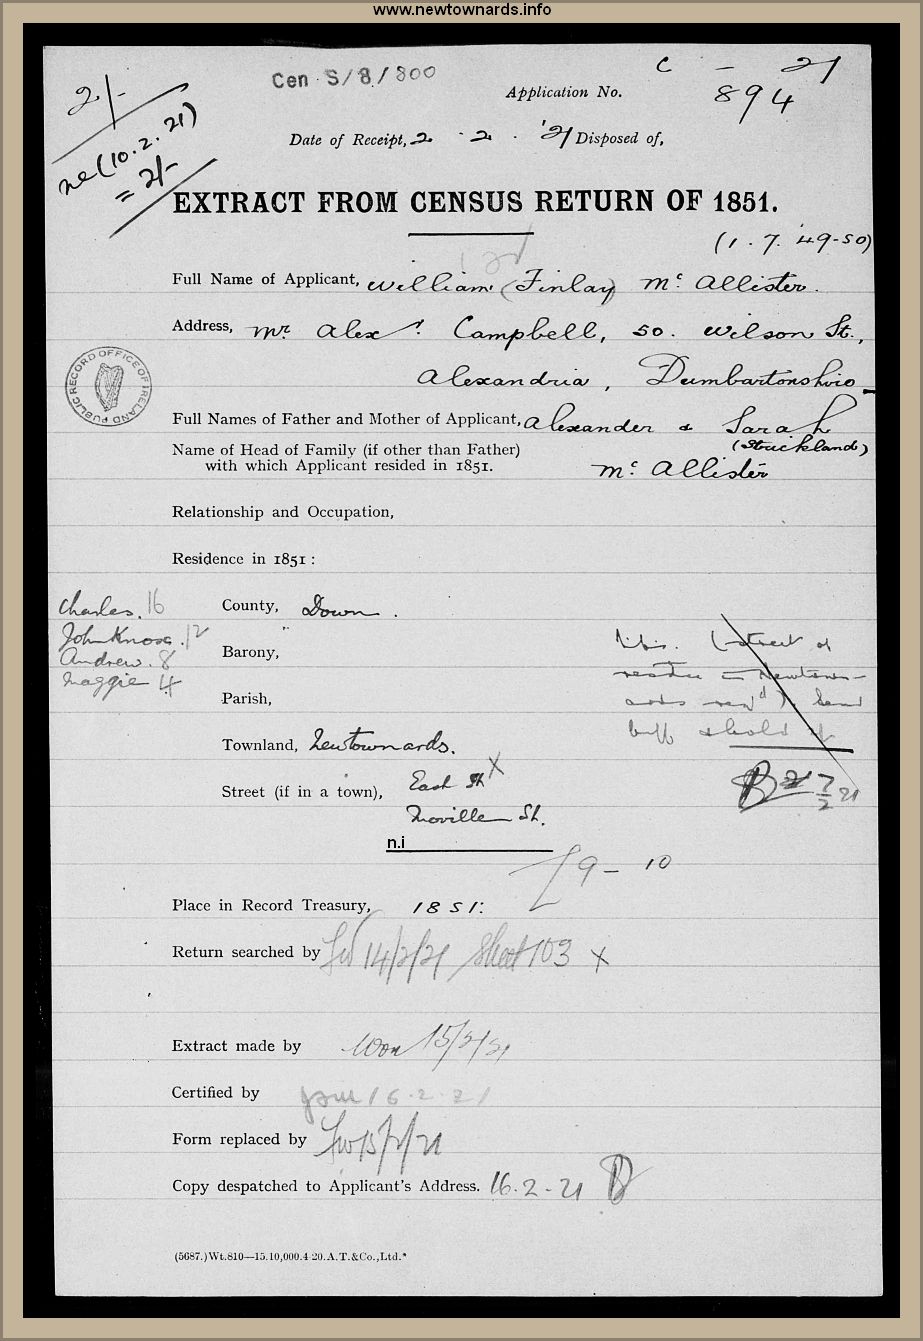 www.newtownards.info
Cen S/8/800
C - 21
Application No. 894
2/-
Date of Receipt, 2 . 2 . '21 Disposed of,
(10.2.21)
= 2/-
EXTRACT FROM CENSUS RETURN OF 1851.
(1.7.49-50)
Full Name of Applicant, William (Finlay) Mc Allister.
Address, Mr. Alexr. Campbell, 50. Wilson St.,
Alexandria, Dumbartonshire
PUBLIC RECORD OFFICE OF IRELAND
Full Names of Father and Mother of Applicant, Alexander & Sarah
(Strickland)
Name of Head of Family (if other than Father)
with which Applicant resided in 1851.
Mc Allister
Relationship and Occupation,
Residence in 1851:
Charles. 16
John Knox. 12
Andrew. 8
Maggie 4
County, Down.
Barony,
Parish,
Townland, Newtownards.
Street (if in a town), East St X
Moville St.
(street of
Newtown-
ards
7/2 21
n.i
[9-10
Place in Record Treasury, 1851:
Return searched by 14/2/21 Sheet 103 X
Extract made by 15/2/21
Certified by 16.2.21
Form replaced by 15/2/21
Copy despatched to Applicant's Address. 16.2-21
(5687.)Wt.810—15.10,000.4-20.A.T.&Co.,Ltd.*